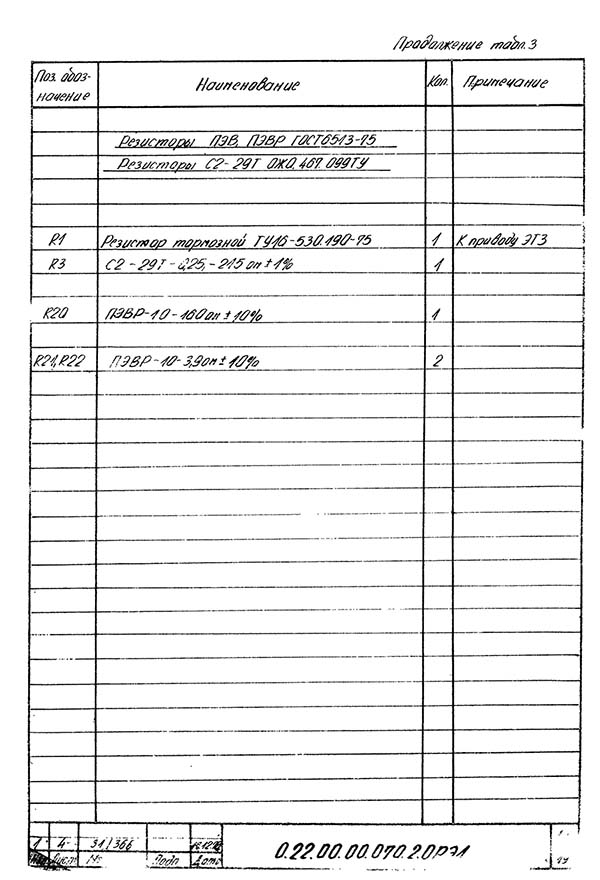 Продолжение табл.3
Поз. обоз-
начение
Наименование
Кол.
Примечание
Резисторы ПЭВ, ПЭВР ГОСТ6513-75
Резисторы С2-29Т ОЖ0.467.099ТУ
R1 Резистор тормозной ТУ16-530.190-75 1 К приводу ЭТ3
R3 С2-29Т-0,25,-215 ом ± 1% 1
R20 ПЭВР-10-160 ом ± 10% 1
R21,R22 ПЭВР-10-3,9 ом ± 10% 2
1 4 31/366
Лист № Подп Дата
0.22.00.00.070.2.0РЭ1